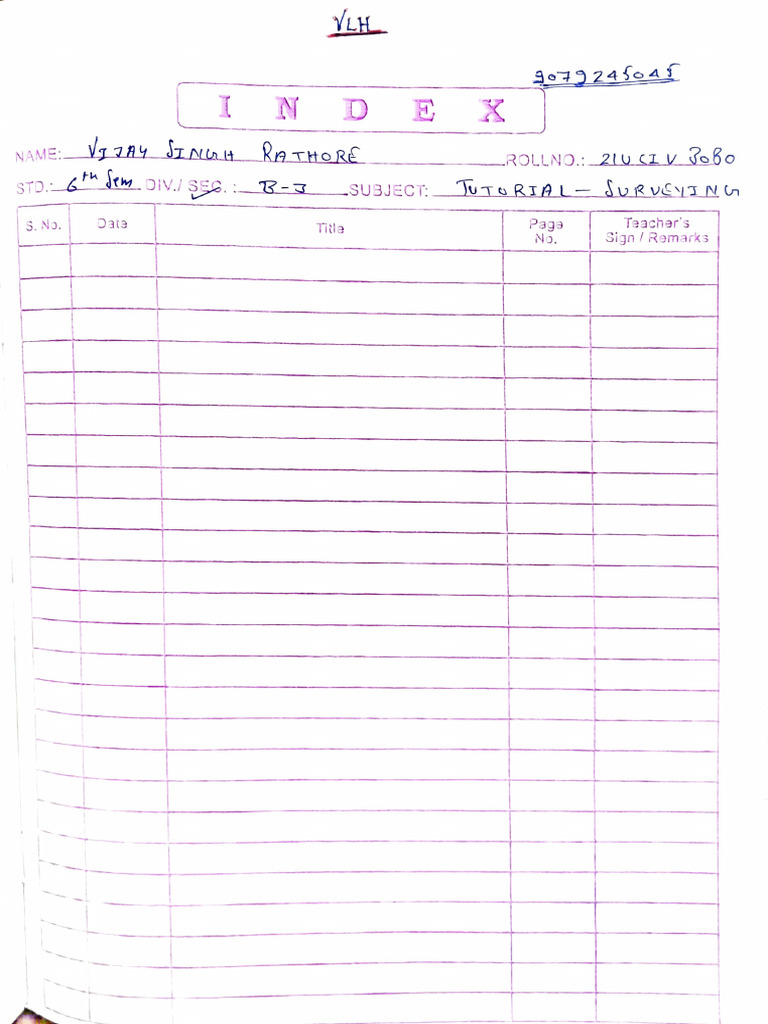 VLH
9079245045
INDEX
NAME: VIJAY SINGH RATHORE ROLLNO.: 21UCIV3080
STD.: 6th Sem DIV./ SEC. : B-J SUBJECT: TUTORIAL - SURVEYING
S. No. Date Title Page No. Teacher's Sign / Remarks